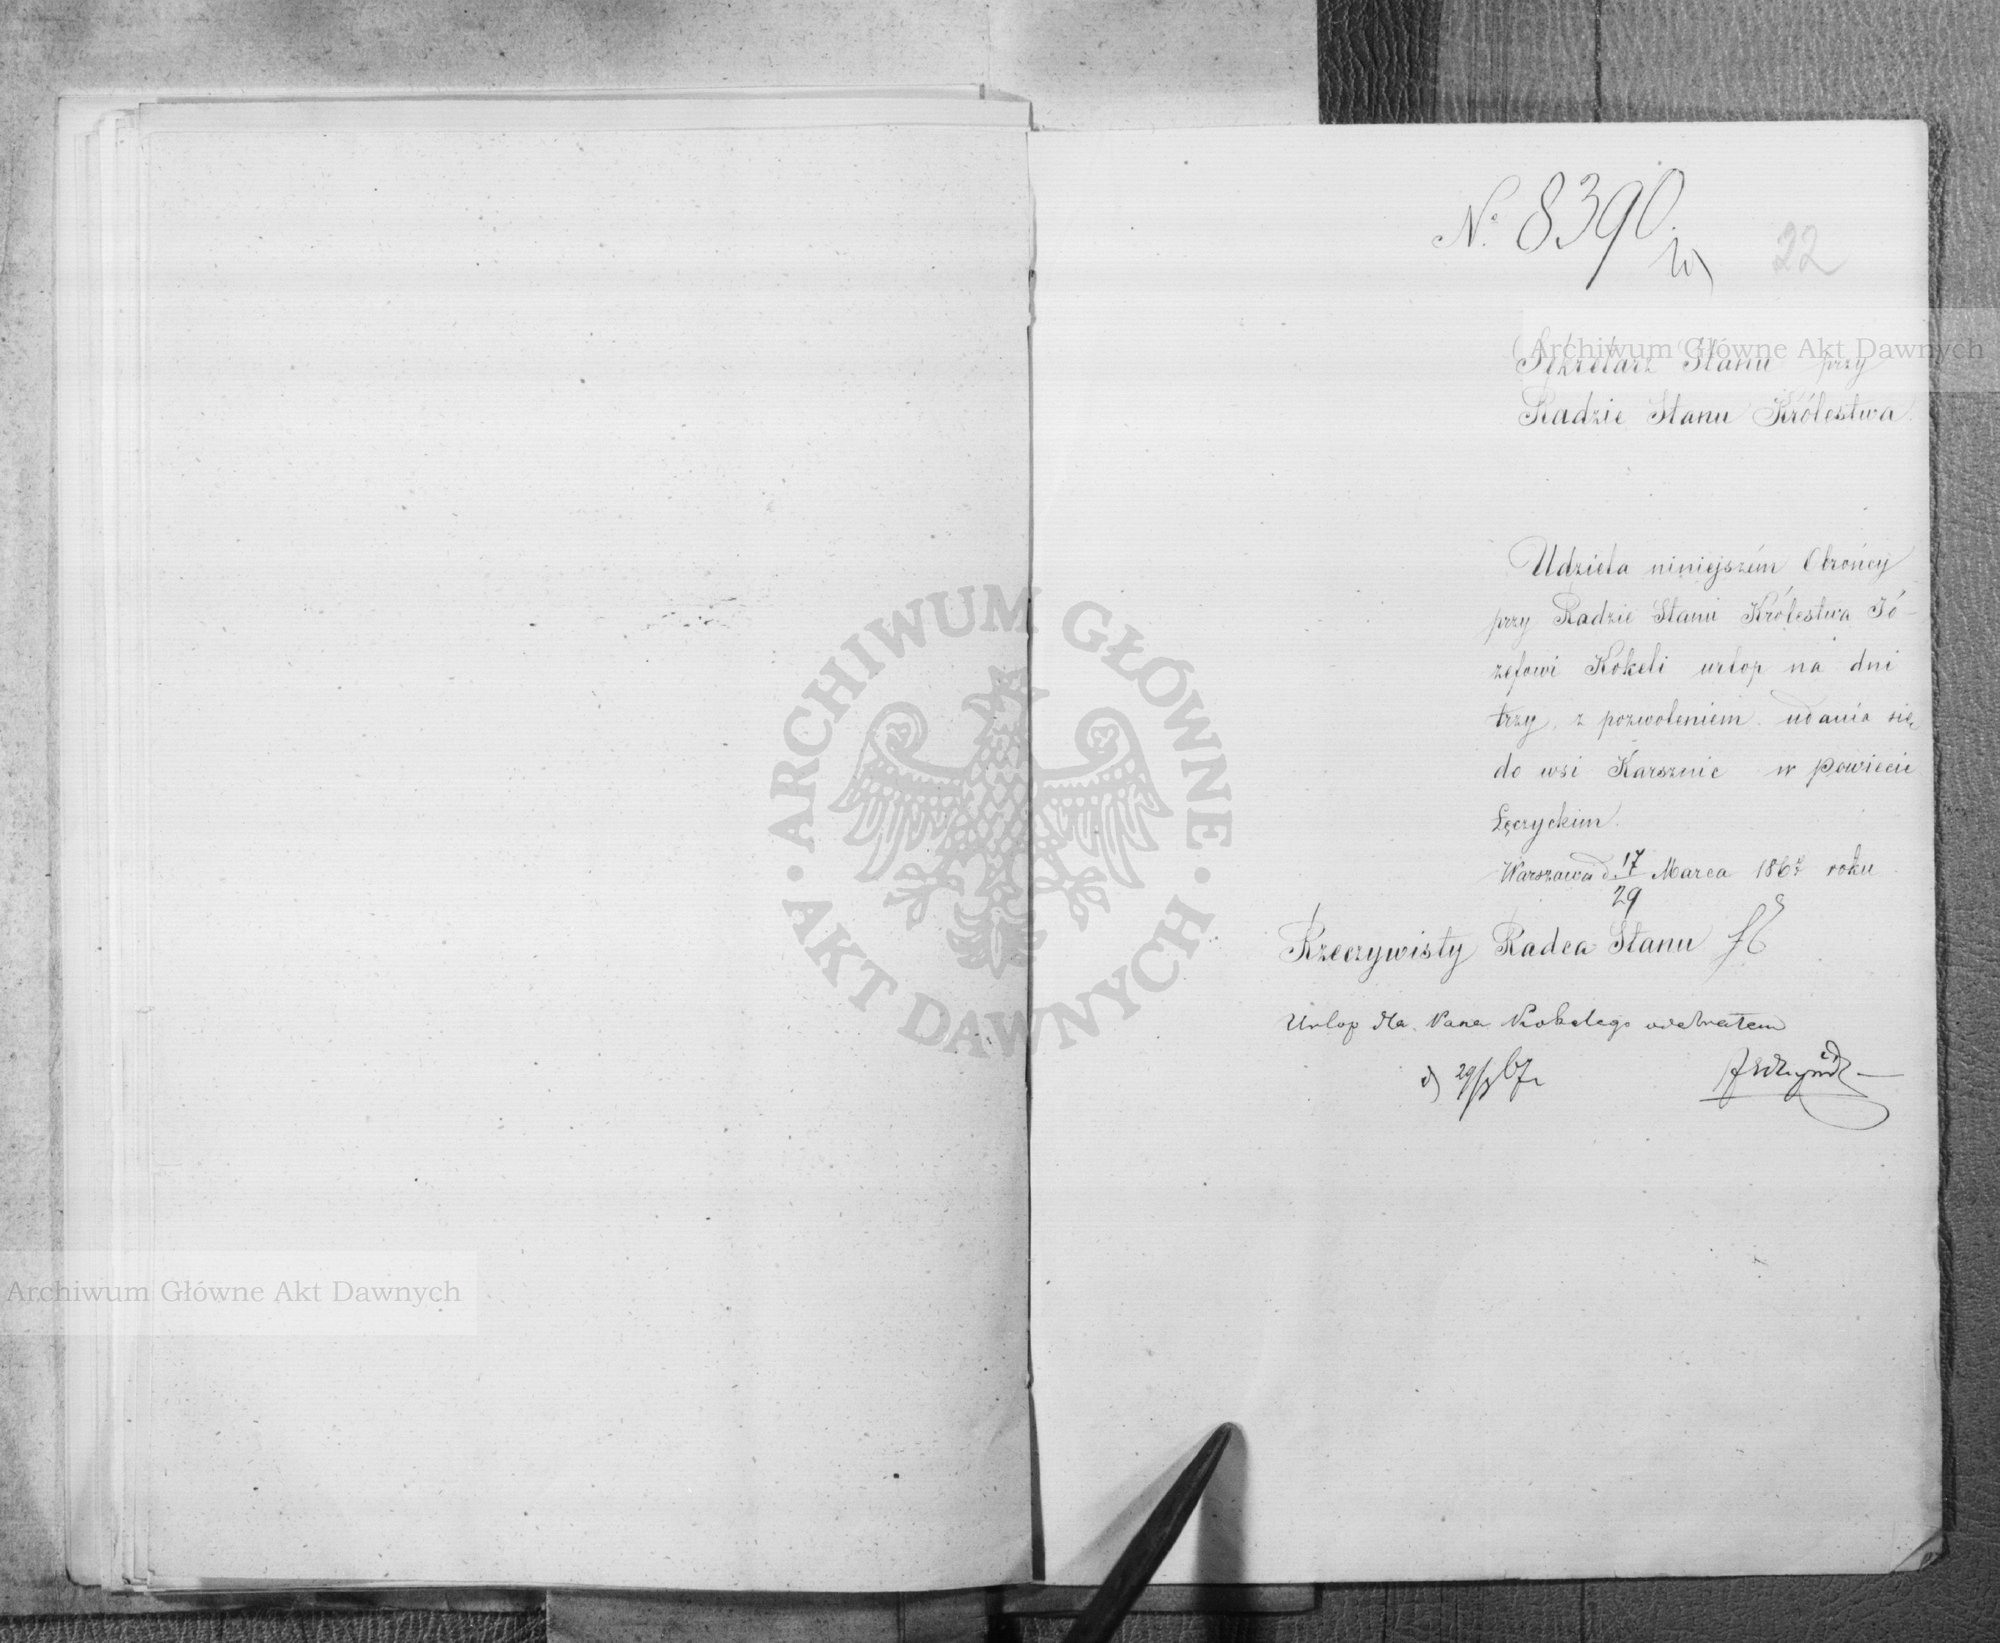 No. 8390.
22
Archiwum Główne Akt Dawnych
Sekretarz Stanu przy
Radzie Stanu Królestwa
Udziela niniejszém Obrońcy
przy Radzie Stanu Królestwa Jó-
zefowi Kokeli urlop na dni
trzy, z pozwoleniem udania się
do wsi Karsznic w powiecie
Łęczyckim.
Warszawa d. 17/29 Marca 1867 roku
Rzeczywisty Radca Stanu
Urlop dla Pana Kokelego odebrałem
d 29/3 67 r
ARCHIWUM GŁÓWNE
AKT DAWNYCH
Archiwum Główne Akt Dawnych